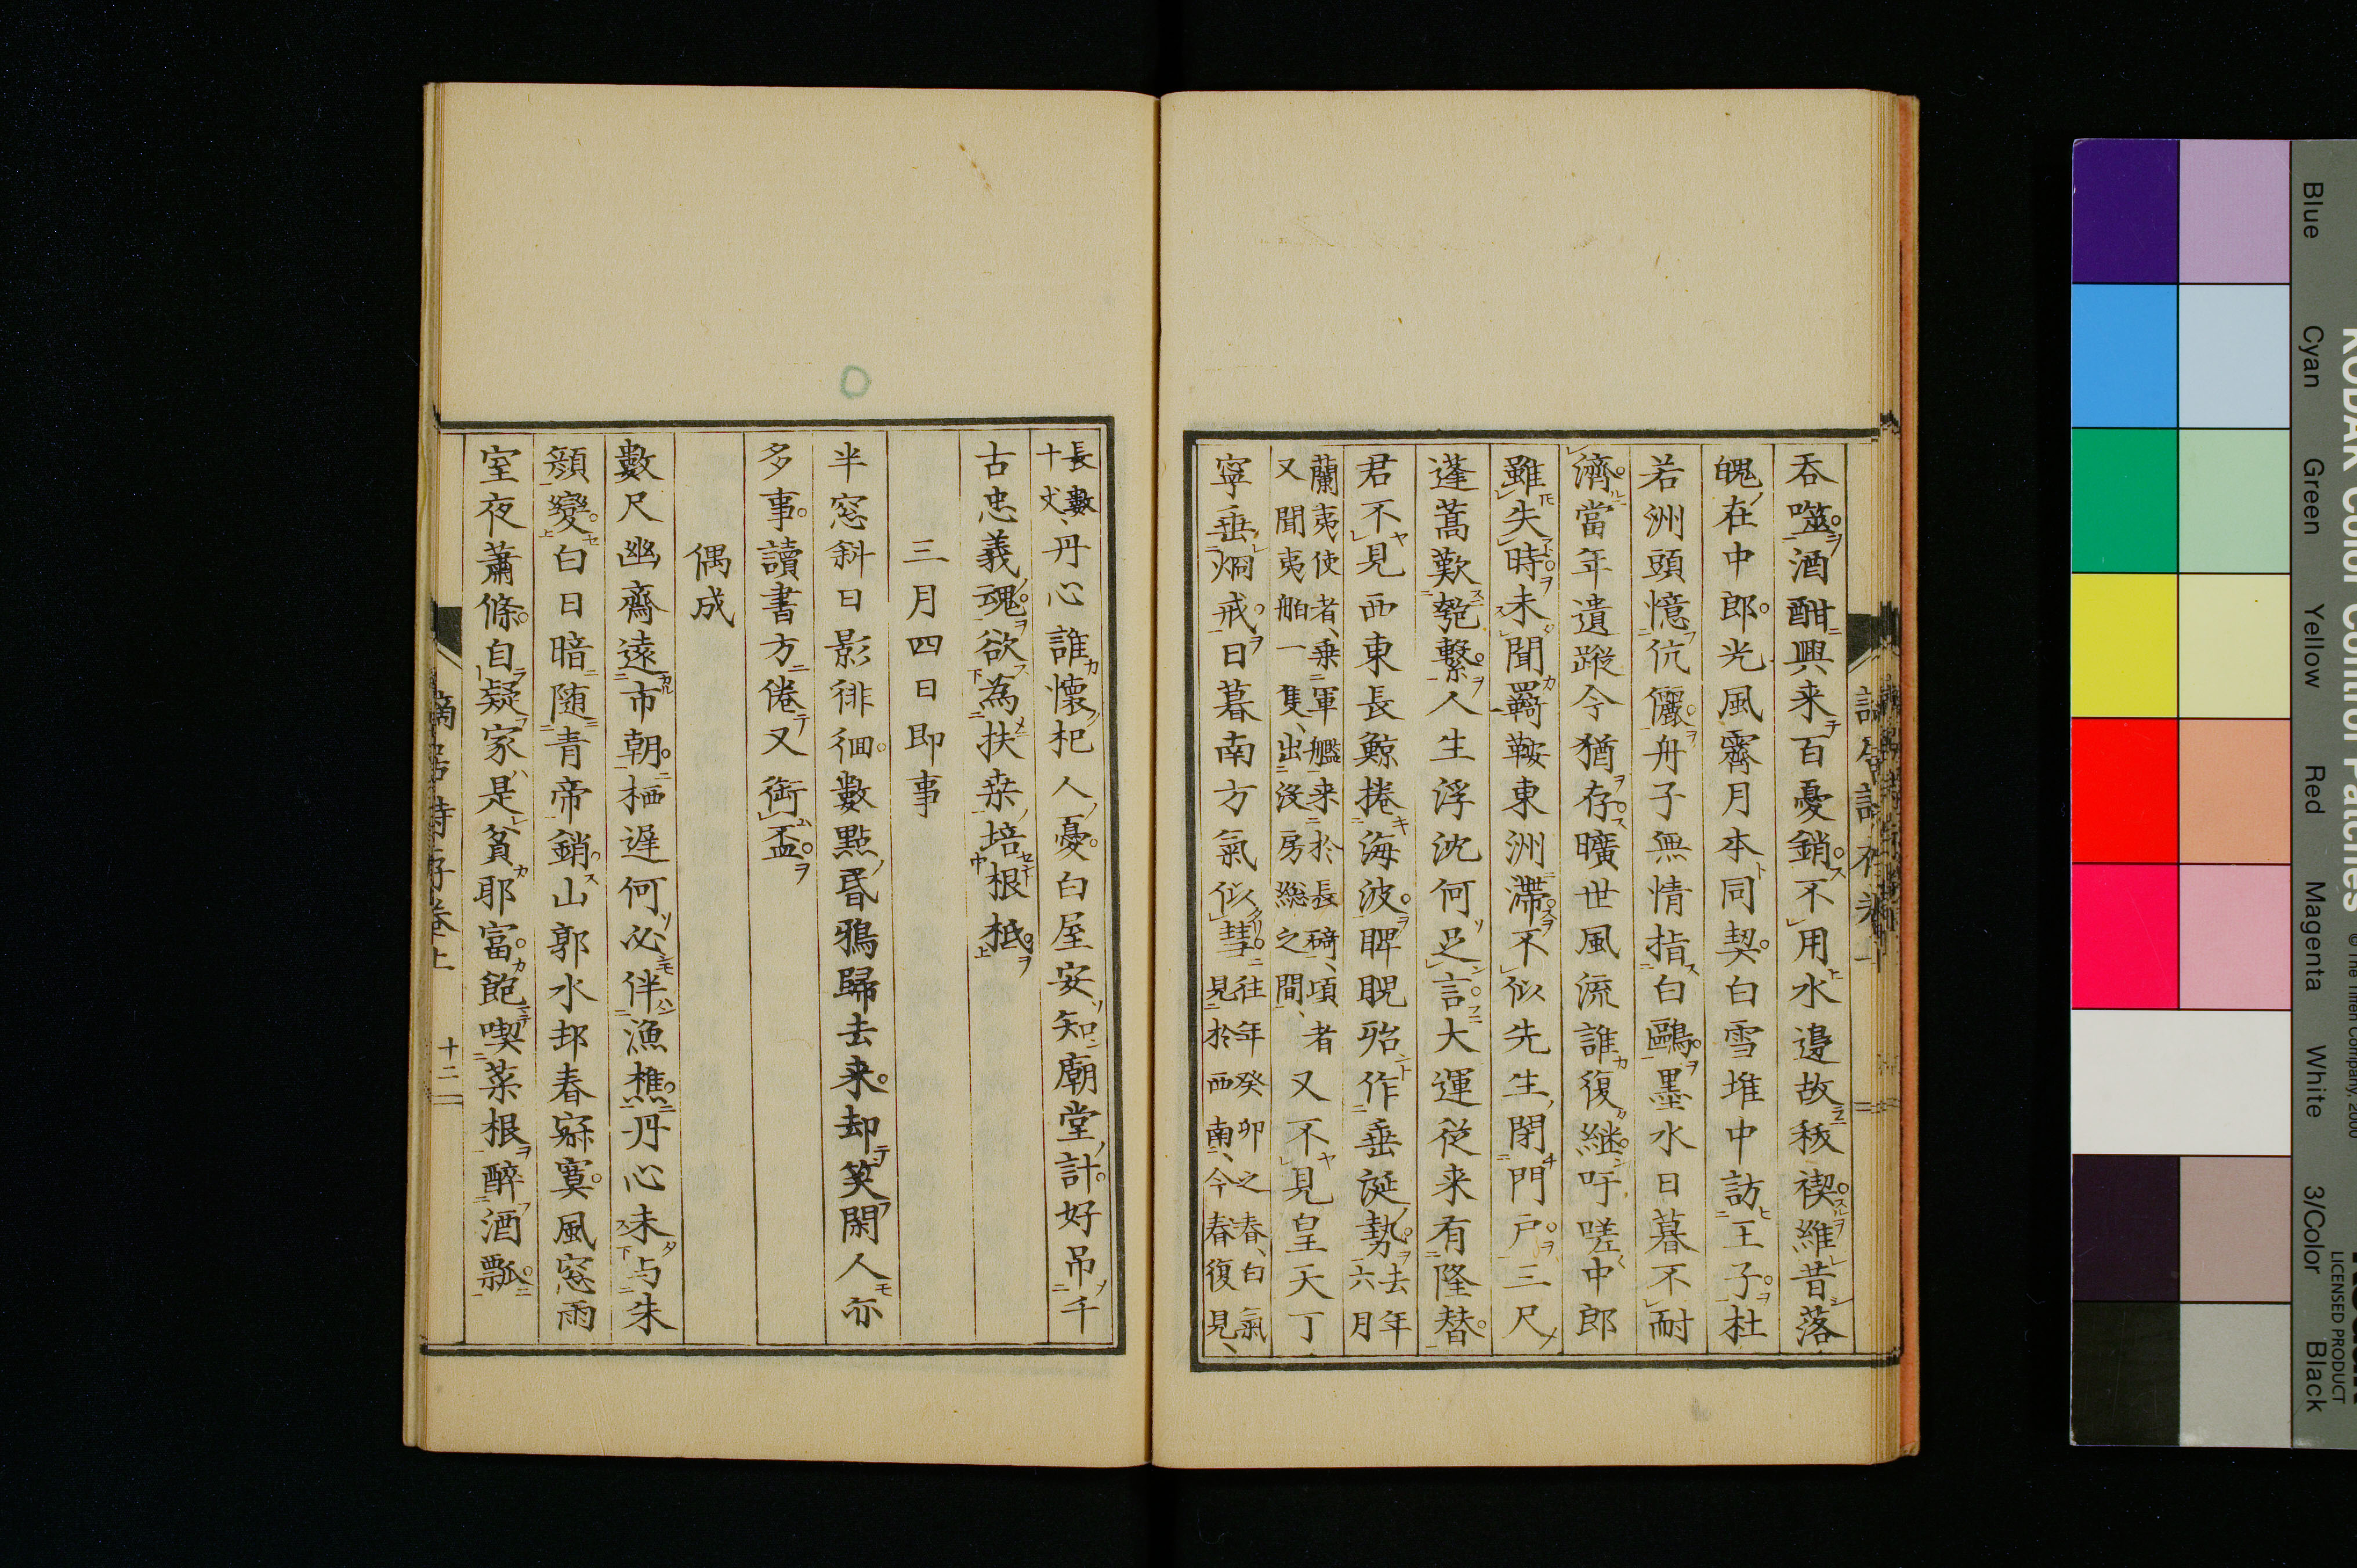 吞噬酒酣興来百憂銷不用水邊故秡禊維昔落
魄在中郎光風霽月本同契白雪堆中訪王子杜
若洲頭憶伉儷舟子無情指白鷗墨水日暮不耐
濟當年遺蹤今猶存曠世風流誰復継吁嗟中郎
雖失時未聞羈鞍東洲滯不似先生閉門戸三尺
蓬蒿歎匏繫人生浮沈何足言大運従来有隆替
君不見西東長鯨捲海波睥睨殆作垂涎勢去年六月
蘭夷使者乗軍艦来於長碕頃者
又聞夷舶一隻出沒房総之間又不見皇天丁
寧垂烱戒日暮南方氣似彗往年癸卯之春白氣
見於西南今春復見
長數
十丈丹心誰懐杞人憂白屋安知廟堂計好吊千
古忠義魂欲為扶桒培根柢
三月四日即事
半窓斜日影徘徊數點昏鴉歸去来却笑閑人亦
多事讀書方倦又銜盃
偶成
數尺幽齋遠市朝栖遅何必伴漁樵丹心未与朱
顔變白日暗随青帝銷山郭水邨春寂寞風窓雨
室夜蕭條自疑家是貧耶富飽喫菜根醉酒瓢
十二
Blue
Cyan
Green
Yellow
Red
Magenta
White
3/Color
Black
KODAK Color Control Patches
© The Tiffen Company, 2000
LICENSED PRODUCT